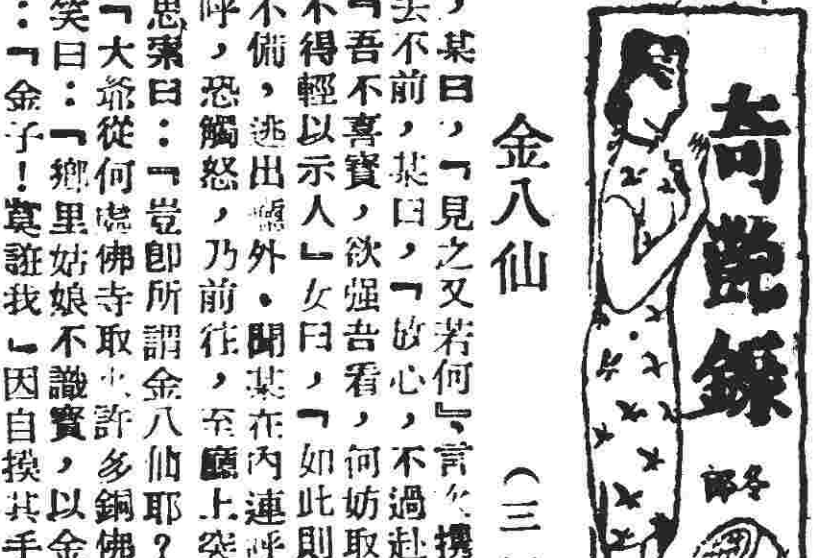 奇艷錄
金八仙
（三
，某曰，『見之又若何』，言次
去不前，某曰，『放心，不過赴
『吾不喜寶，欲强吾看，何妨取
不得輕以示人』女曰，『如此則
不備，逃出廳外。聞某在內連呼
呼，恐觸怒，乃前往，至廳上突
思索曰：『豈卽所謂金八仙耶？
『大爺從何處佛寺取來許多銅佛
笑曰：『鄉里姑娘不識寶，以金
：『金子！莫誑我』因自摸其手